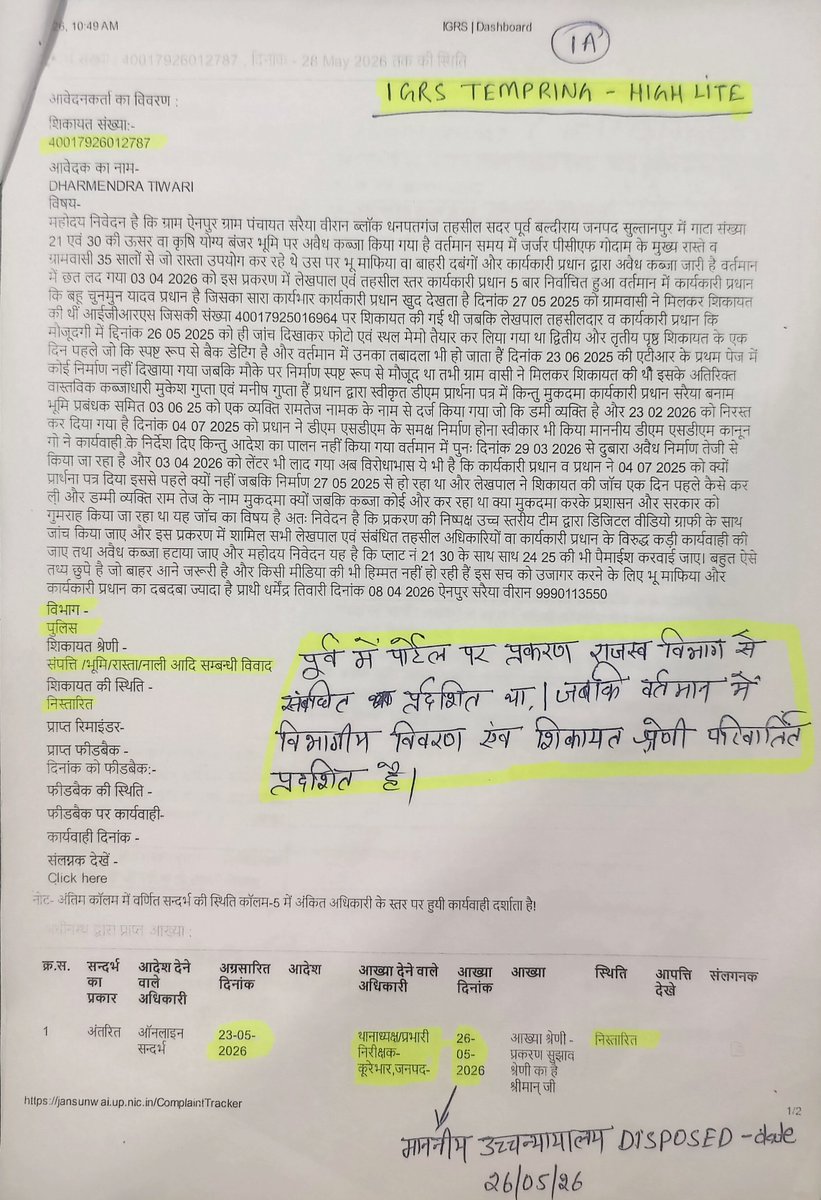 26, 10:49 AM
IGRS | Dashboard
1A
40017926012787 , दिनांक - 28 May 2026 तक की स्थिति
IGRS TEMPRING - HIGH LITE
आवेदनकर्ता का विवरण :
शिकायत संख्या:-
40017926012787
आवेदक का नाम-
DHARMENDRA TIWARI
विषय-
महोदय निवेदन है कि ग्राम ऐनपुर ग्राम पंचायत सरैया वीरान ब्लॉक धनपतगंज तहसील सदर पूर्व बल्दीराय जनपद सुल्तानपुर में गाटा संख्या
21 एवं 30 की ऊसर वा कृषि योग्य बंजर भूमि पर अवैध कब्जा किया गया है वर्तमान समय में जर्जर पीसीएफ गोदाम के मुख्य रास्ते व
ग्रामवासी 35 सालों से जो रास्ता उपयोग कर रहे थे उस पर भू माफिया वा बाहरी दबंगों और कार्यकारी प्रधान द्वारा अवैध कब्जा जारी है वर्तमान
में छत लद गया 03 04 2026 को इस प्रकरण में लेखपाल एवं तहसील स्तर कार्यकारी प्रधान 5 बार निर्वाचित हुआ वर्तमान में कार्यकारी प्रधान
कि बहू चूनमुन यादव प्रधान है जिसका सारा कार्यभार कार्यकारी प्रधान खुद देखता है दिनांक 27 05 2025 को ग्रामवासी ने मिलकर शिकायत
की थीं आईजीआरएस जिसकी संख्या 40017925016964 पर शिकायत की गई थी जबकि लेखपाल तहसीलदार व कार्यकारी प्रधान कि
मौजूदगी में दिनांक 26 05 2025 को ही जांच दिखाकर फोटो एवं स्थल मेमो तैयार कर लिया गया था द्वितीय और तृतीय पृष्ठ शिकायत के एक
दिन पहले जो कि स्पष्ट रूप से बैक डेटिंग है और वर्तमान में उनका तबादला भी हो जाता हैं दिनांक 23 06 2025 की एटीआर के प्रथम पेज में
कोई निर्माण नहीं दिखाया गया जबकि मौके पर निर्माण स्पष्ट रूप से मौजूद था तभी ग्राम वासी ने मिलकर शिकायत की थीं इसके अतिरिक्त
वास्तविक कब्जाधारी मुकेश गुप्ता एवं मनीष गुप्ता हैं प्रधान द्वारा स्वीकृत डीएम प्रार्थना पत्र में किन्तु मुकदमा कार्यकारी प्रधान सरैया बनाम
भूमि प्रबंधक समित 03 06 25 को एक व्यक्ति रामतेज नामक के नाम से दर्ज किया गया जो कि डमी व्यक्ति है और 23 02 2026 को निरस्त
कर दिया गया है दिनांक 04 07 2025 को प्रधान ने डीएम एसडीएम के समक्ष निर्माण होना स्वीकार भी किया माननीय डीएम एसडीएम कानून
गो ने कार्यवाही के निर्देश दिए किन्तु आदेश का पालन नहीं किया गया वर्तमान में पुनः दिनांक 29 03 2026 से दुबारा अवैध निर्माण तेजी से
किया जा रहा है और 03 04 2026 को लेंटर भी लाद गया अब विरोधाभास ये भी है कि कार्यकारी प्रधान व प्रधान ने 04 07 2025 को क्यों
प्रार्थना पत्र दिया इससे पहले क्यों नहीं जबकि निर्माण 27 05 2025 से हो रहा था और लेखपाल ने शिकायत की जाँच एक दिन पहले कैसे कर
ली और डम्मी व्यक्ति राम तेज के नाम मुकदमा क्यों जबकि कब्जा कोई और कर रहा था क्या मुकदमा करके प्रशासन और सरकार को
गुमराह किया जा रहा था यह जाँच का विषय है अतः निवेदन है कि प्रकरण की निष्पक्ष उच्च स्तरीय टीम द्वारा डिजिटल वीडियो ग्राफी के साथ
जांच किया जाए और इस प्रकरण में शामिल सभी लेखपाल एवं संबंधित तहसील अधिकारियों वा कार्यकारी प्रधान के विरुद्ध कड़ी कार्यवाही की
जाए तथा अवैध कब्जा हटाया जाए और महोदय निवेदन यह है कि प्लाट नं 21 30 के साथ साथ 24 25 की भी पैमाईश करवाई जाए। बहुत ऐसे
तथ्य छुपे है जो बाहर आने जरूरी है और किसी मीडिया की भी हिम्मत नहीं हो रही हैं इस सच को उजागर करने के लिए भू माफिया और
कार्यकारी प्रधान का दबदबा ज्यादा है प्रार्थी धर्मेंद्र तिवारी दिनांक 08 04 2026 ऐनपुर सरैया वीरान 9990113550
विभाग -
पुलिस
शिकायत श्रेणी -
संपत्ति /भूमि/रास्ता/नाली आदि सम्बन्धी विवाद
शिकायत की स्थिति -
निस्तारित
प्राप्त रिमाइंडर-
प्राप्त फीडबैक -
दिनांक को फीडबैक:-
फीडबैक की स्थिति -
फीडबैक पर कार्यवाही-
कार्यवाही दिनांक -
संलग्नक देखें -
Click here
पूर्व में पोर्टल पर प्रकरण राजस्व विभाग से
संबंधित प्रदर्शित था, | जबकि वर्तमान में
विभागीय विवरण एंव शिकायत श्रेणी परिवर्तित
प्रदर्शित है|
नोट- अंतिम कॉलम में वर्णित सन्दर्भ की स्थिति कॉलम-5 में अंकित अधिकारी के स्तर पर हुयी कार्यवाही दर्शाता है!
अधीनस्थ द्वारा प्राप्त आख्या :
क्र.स. सन्दर्भ का प्रकार आदेश देने वाले अधिकारी अग्रसारित दिनांक आदेश आख्या देने वाले अधिकारी आख्या दिनांक आख्या स्थिति आपत्ति देखे संलगनक
1 अंतरित ऑनलाइन सन्दर्भ 23-05-2026 थानाध्यक्ष/प्रभारी निरीक्षक-कूरेभार,जनपद- 26-05-2026 आख्या श्रेणी - प्रकरण सुझाव श्रेणी का है श्रीमान् जी निस्तारित
https://jansunwai.up.nic.in/ComplaintTracker
1/2
माननीय उच्चन्यायालय DISPOSED - date
26/05/26